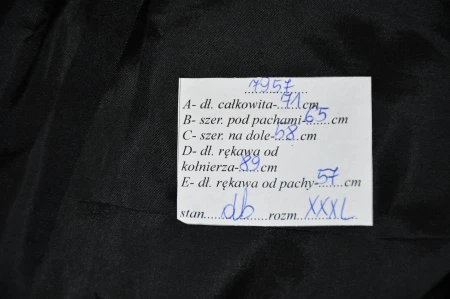 7957
A- dł. całkowita-71cm
B- szer. pod pachami-65cm
C- szer. na dole-58cm
D- dł. rękawa od
kołnierza-89cm
E- dł. rękawa od pachy-57cm
stan db rozm. XXXL